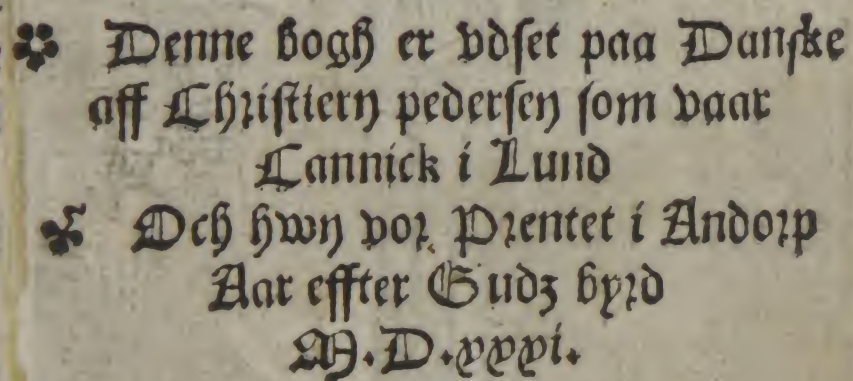 Denne bogh er vdset paa Danske
aff Christiern pedersen som vaar
Cannick i Lund
Och hwn vor Prentet i Andorp
Aar effter Gudz byrd
M.D.xxxi.